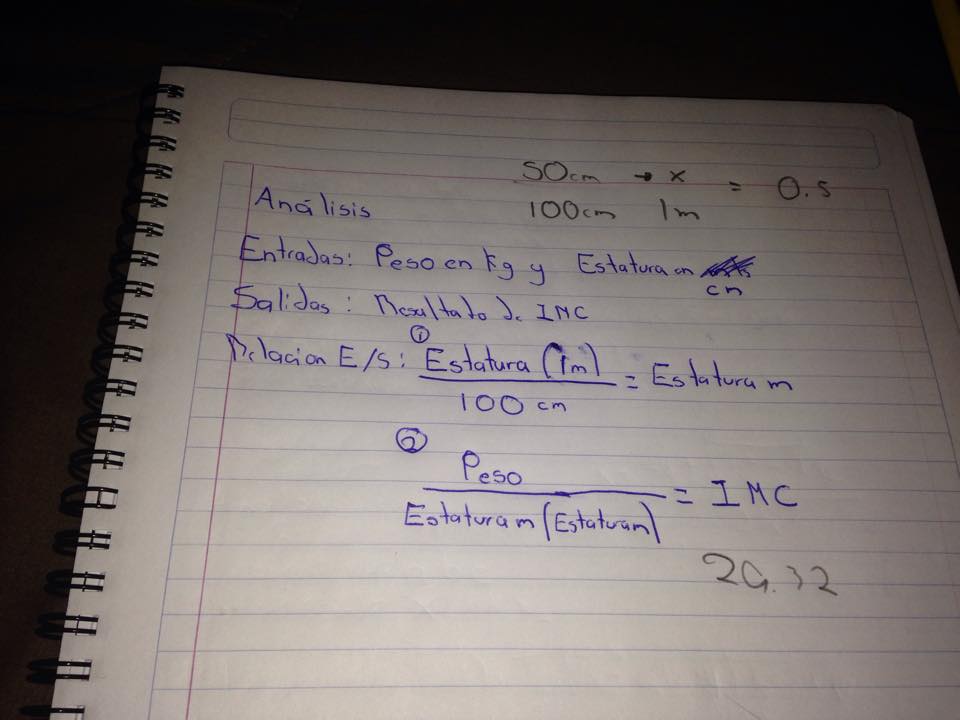 50cm → x = 0.5
100cm 1m
Análisis
Entradas: Peso en kg y Estatura en
cm
Salidas: Resultado de IMC
Relacion E/S: ① Estatura (1m) = Estatura m
100 cm
② Peso = IMC
Estatura m (Estatura m)
29.32